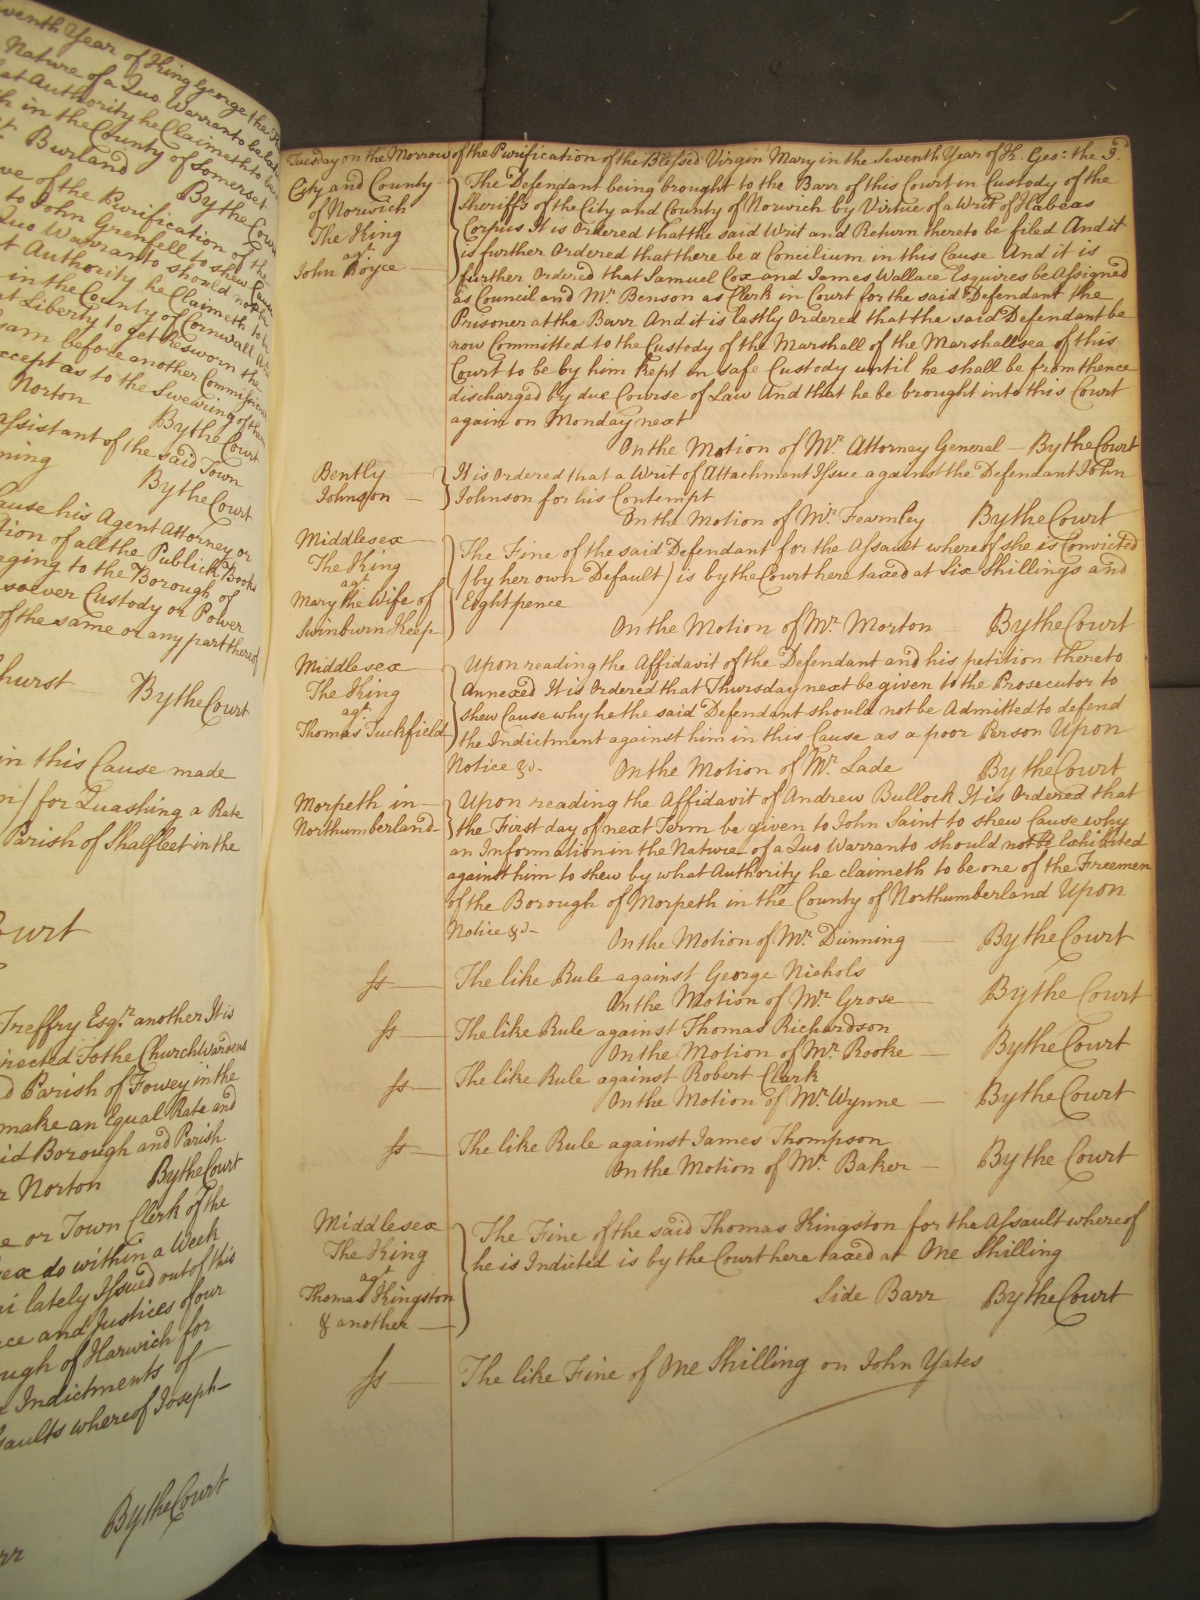 eventh Year of King George the
Nature of a Quo Warranto be
at Authority he Claimeth to be
in the County of Somerset
Burland By the Court
of the Purification of the
to John Grenfell to shew Cause
Quo Warranto should not be
t Authority he Claimeth to be
in the County of Cornwall
at Liberty to get Resworn the
before another Commissioner
xcept as to the Swearing of them
Norton By the Court
assistant of the said Town
ning By the Court
ause his Agent Attorney or
tion of all the Publick Books
ging to the Borough of
soever Custody or Power
of the same or any part thereof
hurst By the Court
in this Cause made
for Quashing a Rate
Parish of Shalfleet in the
ourt
Treffry Esqr. another It is
irected To the Churchwardens
d Parish of Fowey in the
make an Equal Rate and
id Borough and Parish
r Norton By the Court
e or Town Clerk of the
ex do within a Week
lately Issued out of this
ce and Justices of our
ugh of Harwich for
Indictments of
saults whereof Joseph
By the Court
rr
Tuesday on the Morrow of the Purification of the Blessed Virgin Mary in the Seventh Year of K. Geo: the 3.
City and County
of Norwich
The King
agt
John Royce
The Defendant being brought to the Barr of this Court in Custody of the
Sheriffs of the City and County of Norwich by Virtue of a Writ of Habeas
Corpus It is Ordered that the said Writ and Return thereto be filed And it
is further Ordered that there be a Concilium in this Cause And it is
further Ordered that Samuel Cox and James Wallace Esquires be Assigned
as Council and Mr. Benson as Clerk in Court for the said Defendant the
Prisoner at the Barr And it is lastly Ordered that the said Defendant be
now Committed to the Custody of the Marshall of the Marshallsea of this
Court to be by him kept in safe Custody until he shall be from thence
discharged by due Course of Law And that he be brought into this Court
again on Monday next
On the Motion of Mr. Attorney General By the Court
Bently
Johnson
It is Ordered that a Writ of Attachment Issue against the Defendant John
Johnson for his Contempt
On the Motion of Mr. Fearnley By the Court
Middlesex
The King
agt
Mary the Wife of
Swinburn Keep
The Fine of the said Defendant for the Assault whereof she is Convicted
(by her own Default) is by the Court here taxed at Six Shillings and
Eight pence
On the Motion of Mr. Morton By the Court
Middlesex
The King
agt
Thomas Tuckfield
Upon reading the Affidavit of the Defendant and his petition thereto
Annexed It is Ordered that Thursday next be given to the Prosecutor to
shew Cause why he the said Defendant should not be Admitted to defend
the Indictment against him in this Cause as a poor Person Upon
Notice &c. On the Motion of Mr. Lade By the Court
Morpeth in
Northumberland
Upon reading the Affidavit of Andrew Bullock It is Ordered that
the First day of next Term be given to John Saint to shew Cause why
an Information in the Nature of a Quo Warranto should not be Exhibited
against him to shew by what Authority he claimeth to be one of the Freemen
of the Borough of Morpeth in the County of Northumberland Upon
Notice &c. On the Motion of Mr. Dunning By the Court
ss The like Rule against George Nichols
On the Motion of Mr. Grose By the Court
ss The like Rule against Thomas Richardson
On the Motion of Mr. Rooke By the Court
ss The like Rule against Robert Clerk
On the Motion of Mr. Wynne By the Court
ss The like Rule against James Thompson
On the Motion of Mr. Baker By the Court
Middlesex
The King
agt
Thomas Kingston
& another
The Fine of the said Thomas Kingston for the Assault whereof
he is Indicted is by the Court here taxed at One Shilling
Side Barr By the Court
ss The like Fine of One Shilling on John Yates